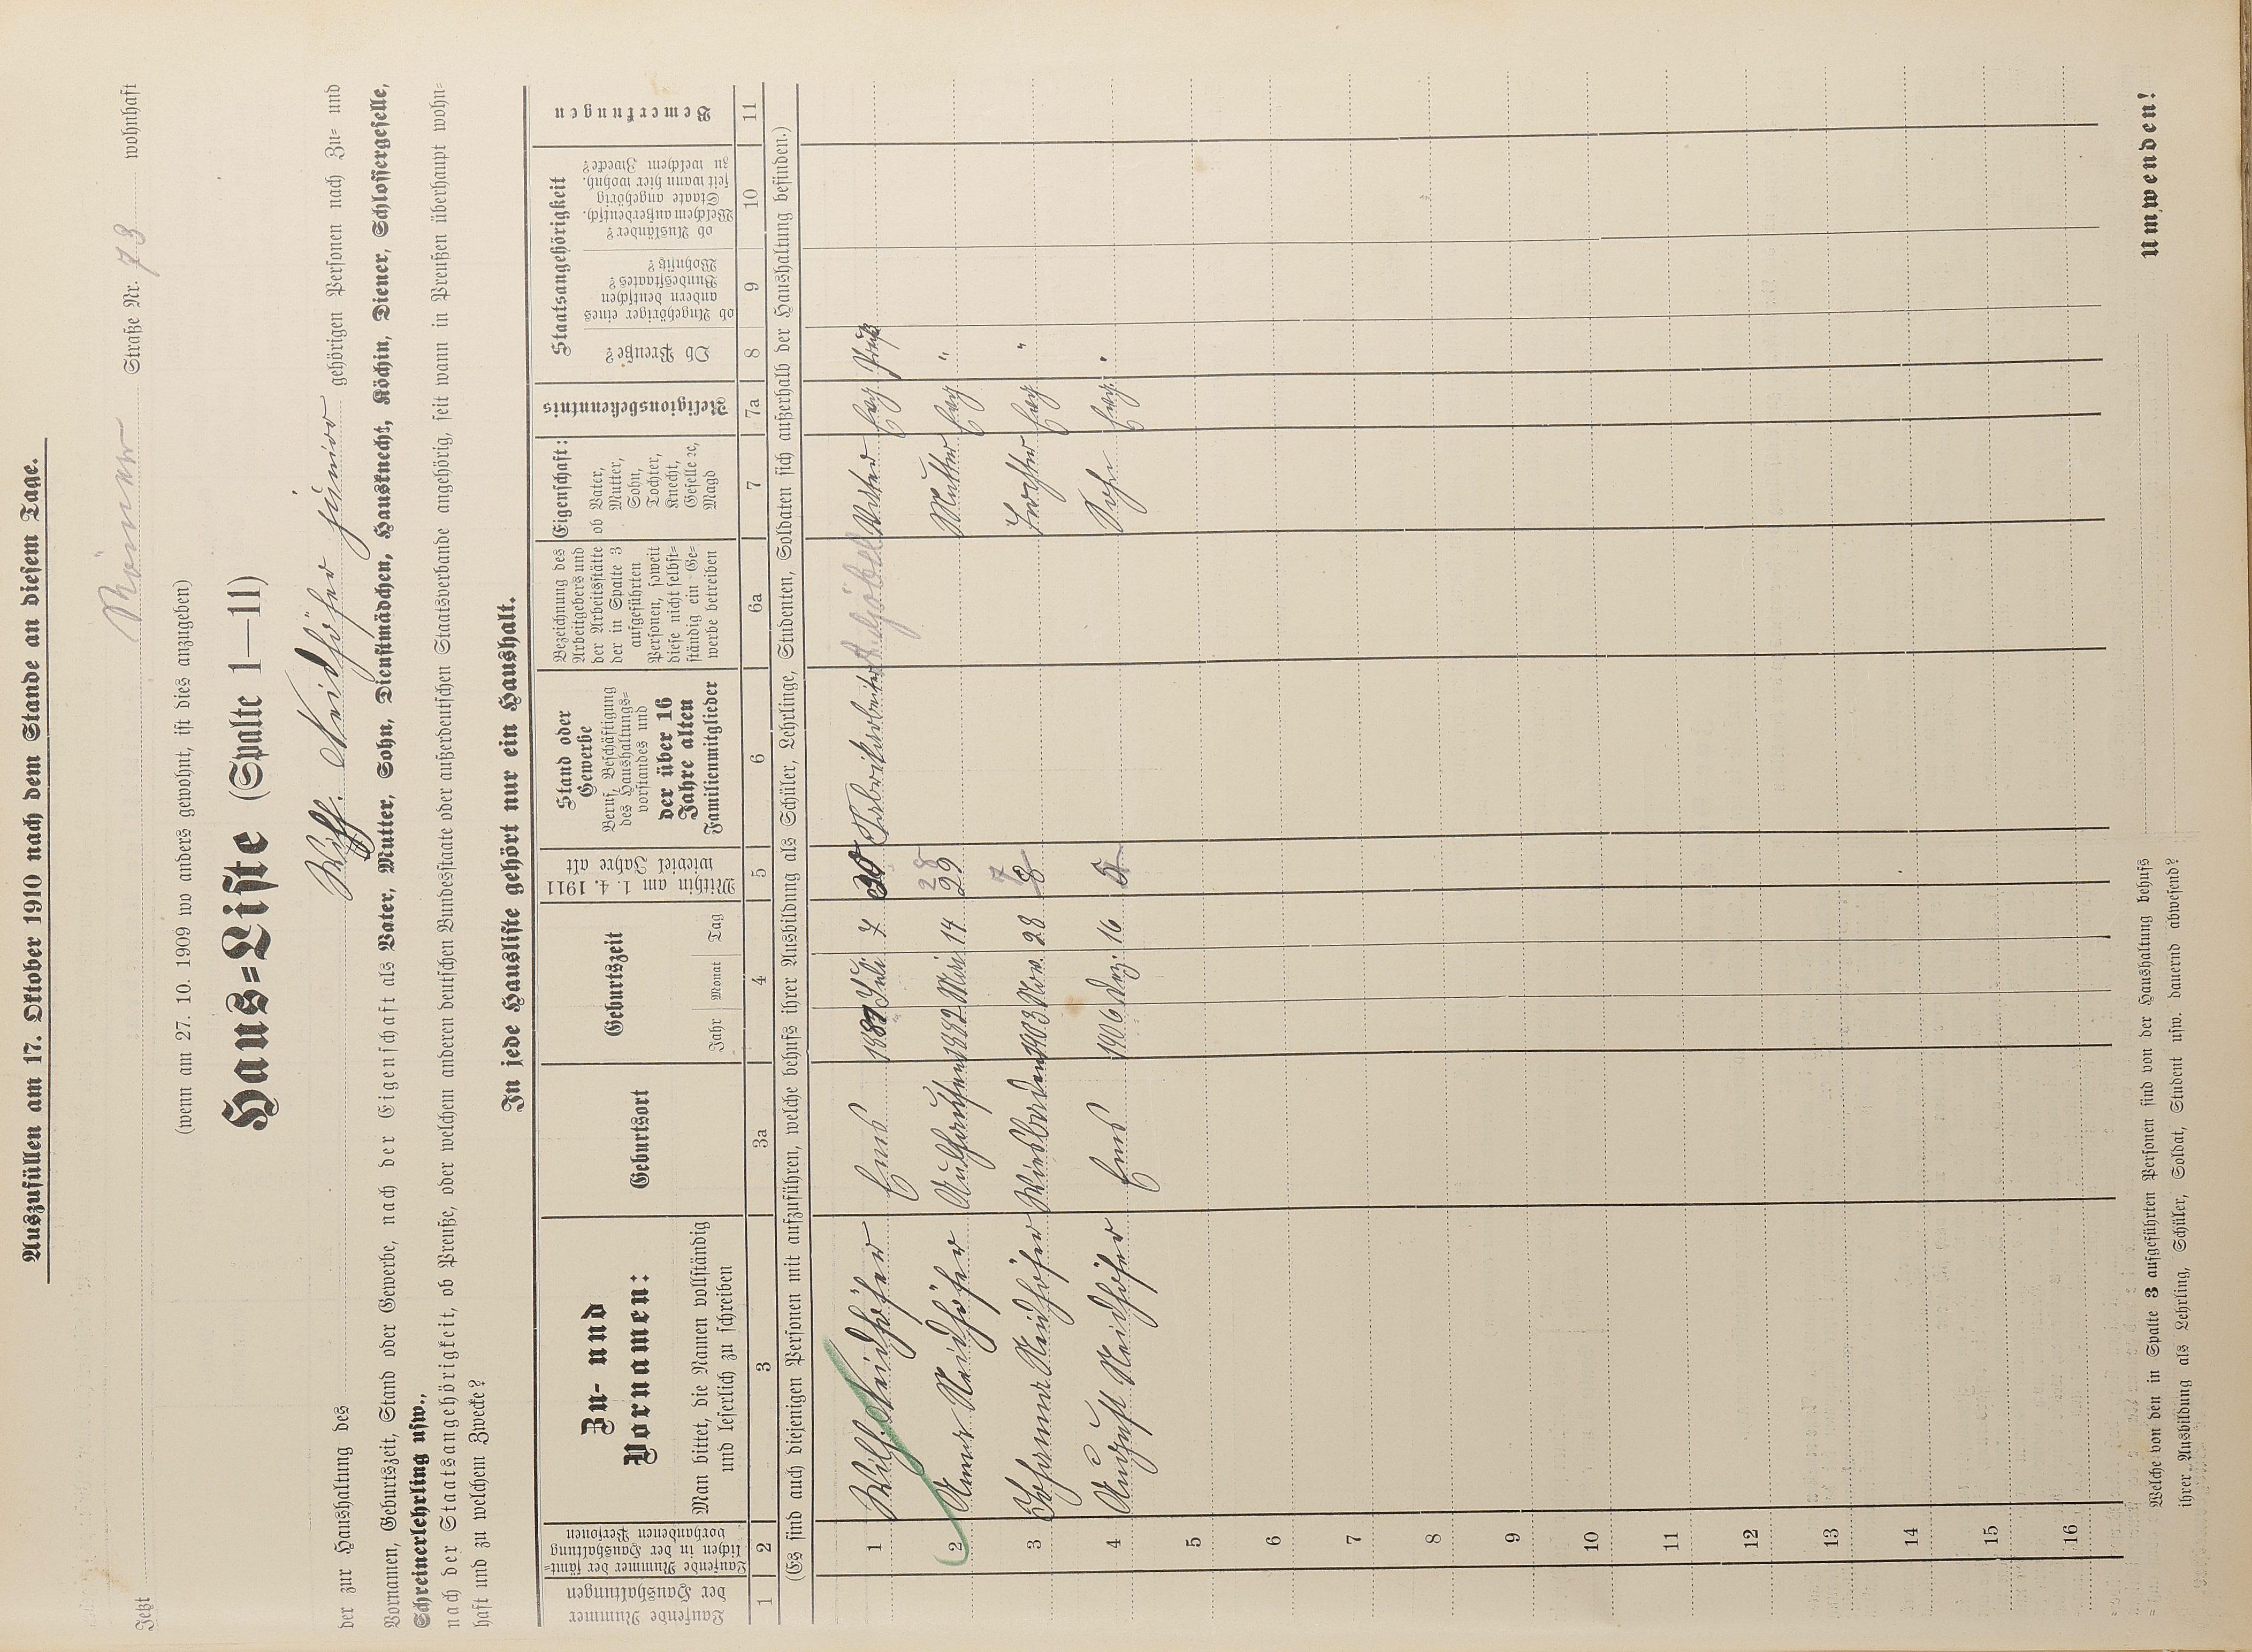 Auszufüllen am 17. Oktober 1910 nach dem Stande an diesem Tage.
Jetzt Römer Straße Nr. 73 wohnhaft
(wenn am 27. 10. 1909 wo anders gewohnt, ist dies anzugeben)
Haus=Liste (Spalte 1—11)
der zur Haushaltung des Wilh. Neidhöfer junior gehörigen Personen nach Zu= und
Vornamen, Geburtszeit, Stand oder Gewerbe, nach der Eigenschaft als Vater, Mutter, Sohn, Dienstmädchen, Hausknecht, Köchin, Diener, Schlossergeselle,
Schreinerlehrling usw.,
nach der Staatsangehörigkeit, ob Preuße, oder welchem anderen deutschen Bundesstaate oder außerdeutschen Staatsverbande angehörig, seit wann in Preußen überhaupt wohn=
haft und zu welchem Zwecke?
In jede Hausliste gehört nur ein Haushalt.
Laufende Nummer
der Haushaltungen
Laufende Nummer der sämt=
lichen in der Haushaltung
vorhandenen Personen
Zu- und
Vornamen:
Man bittet, die Namen vollständig
und leserlich zu schreiben
Geburtsort
Geburtszeit
Jahr Monat Tag
Mithin am 1. 4. 1911
wieviel Jahre alt
Stand oder
Gewerbe
Beruf, Beschäftigung
des Haushaltungs=
vorstandes und
der über 16
Jahre alten
Familienmitglieder
Bezeichnung des
Arbeitgebers und
der Arbeitsstätte
der in Spalte 3
aufgeführten
Personen, soweit
diese nicht selbst=
ständig ein Ge=
werbe betreiben
Eigenschaft:
ob Vater,
Mutter,
Sohn,
Tochter,
Knecht,
Geselle ꝛc,
Magd
Religionsbekenntnis
Staatsangehörigkeit
Ob Preuße?
ob Angehöriger eines
andern deutschen
Bundesstaates?
Wohnsitz?
ob Ausländer?
Welchem außerdeutsch.
Staate angehörig
seit wann hier wohnh.
zu welchem Zwecke?
Bemerkungen
1 2 3 3a 4 5 6 6a 7 7a 8 9 10 11
(Es sind auch diejenigen Personen mit aufzuführen, welche behufs ihrer Ausbildung als Schüler, Lehrlinge, Studenten, Soldaten sich außerhalb der Haushaltung befinden.)
1 Wilh. Neidhöfer Ems Juli 7 30 Fabrikarbeiter Vater Evg. Preuß
2 Anna Neidhöfer 1882 Mai 14 29 28 Mutter Evg "
3 Johanna Neidhöfer Wiesbaden 1903 Nov. 28 8 7 Tochter Evg "
4 August Neidhöfer Ems 1906 Dez. 16 Sohn Evg. "
5
6
7
8
9
10
11
12
13
14
15
16
Welche von den in Spalte 3 aufgeführten Personen sind von der Haushaltung behufs
ihrer Ausbildung als Lehrling, Schüler, Soldat, Student usw. dauernd abwesend?
Umwenden!